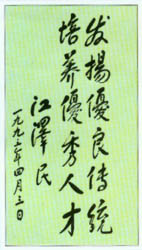 发揚優良傳統
培养優秀人才
江澤民
一九九二年四月三日